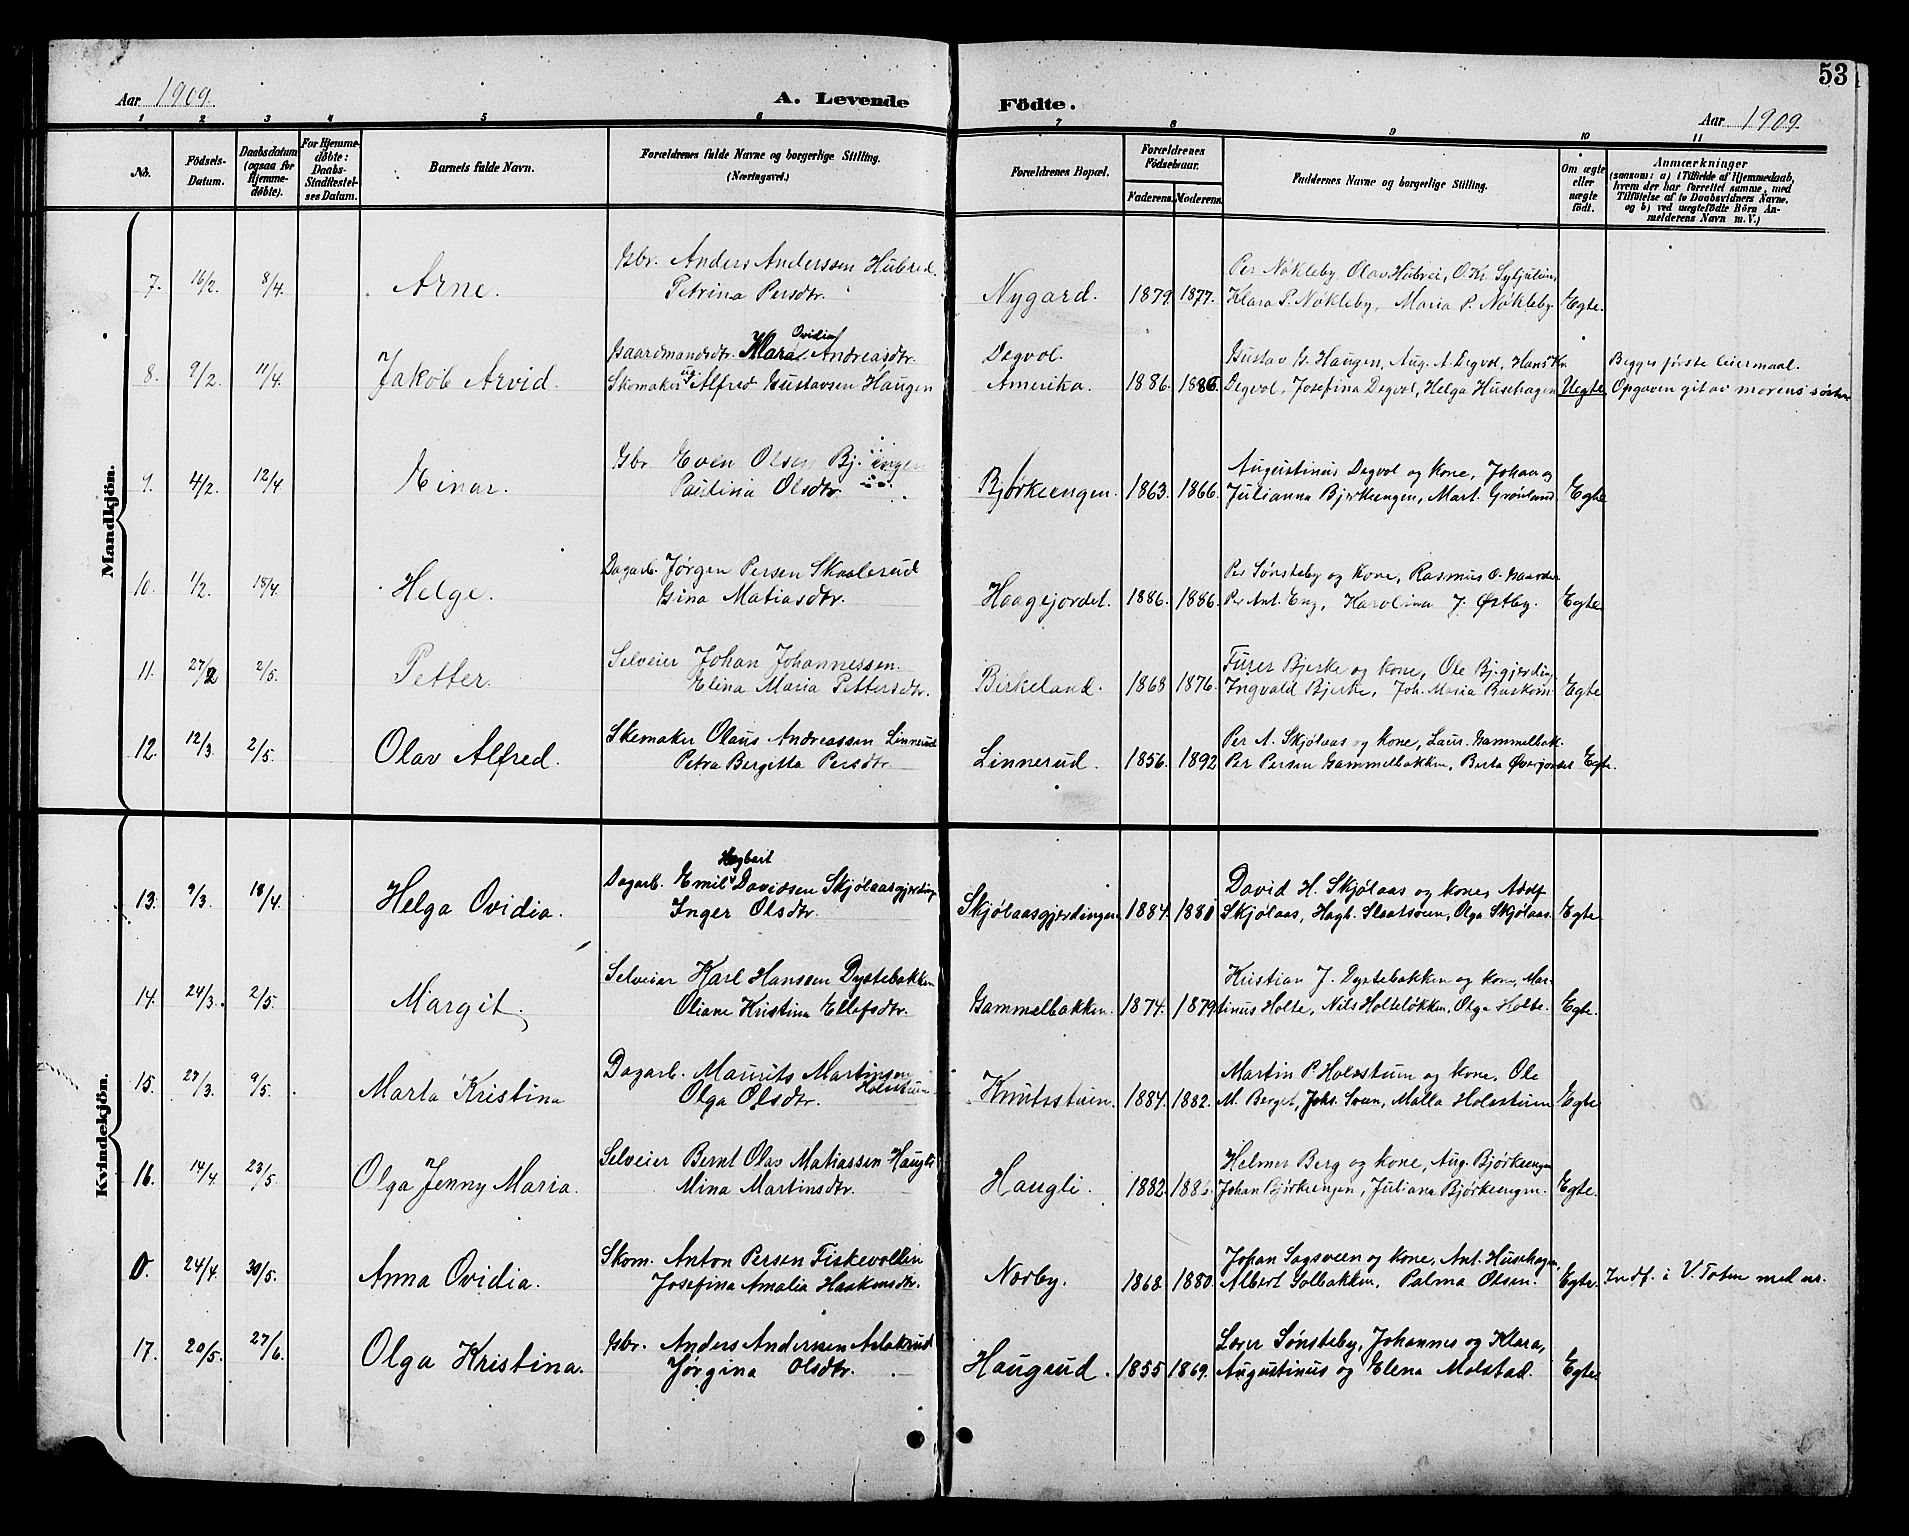 53
Aar 1909.
A. Levende
Födte.
Aar 1909
1 2 3 4 5 6 7 8 9 10 11
No.
Födsels-
Datum.
Daabsdatum
(ogsaa for
Hjemme-
døbte).
For Hjemme-
døbte:
Daabs-
Stadfæstel-
ses Datum.
Barnets fulde Navn.
Forældrenes fulde Navne og borgerlige Stilling.
(Næringsvei.)
Forældrenes Bopæl.
Forældrenes
Födselsaar.
Faderens. Moderens.
Faddernes Navne og borgerlige Stilling.
Om ægte
eller
uægte
født.
Anmærkninger
(saasom: a) i Tilfælde af Hjemmedaab,
hvem der har forrettet samme, med
Tilföielse af to Daabsvidners Navne.
og b) ved uægtefödte Börn An-
melderens Navn m. V.)
Mandkjön.
7. 16/2. 8/4. Arne. Gbr. Anders Anderssen Hubred.
Petrina Persdtr. Nygard. 1879. 1877.
Per Nøkleby, Olav Hubred, O. Kr.
Klara P. Nøkleby, Maria P. Nøkleby. Egte.
8. 9/2. 11/4. Jakob Arvid. Gaardmandsdtr. Klara Ovidia Andreasdtr.
Skomaker Alfred Gustavsen Haugen
Degvol.
Amerika. 1886. 1886.
Gustav G. Haugen, Aug. A. Degvol, Hans Kr.
Degvol, Josefina Degvol, Helga Husehagen Uegte
Begges første leiermaal.
Opgaven git av morens søster
9. 4/2. 12/4 Einar. Gbr. Even Olsen Bj. engen
Paulina Olsdtr. Bjørkeengen. 1863. 1866.
Augustinus Degvol og Kone, Johan og
Julianna Bjørkeengen, Mart. Grønland. Egte
10. 1/2. 18/4. Helge. Dagarb. Jørgen Persen Skaalerud
Gina Matiasdtr. Haagejordet. 1886. 1886.
Per Sønsteby og Kone, Rasmus O. Gaarder
Per Ant. Eng, Karolina J. Østby. Egte
11. 27/2 2/5. Petter. Selveier Johan Johannessen.
Elina Maria Pettersdtr. Birkeland. 1868 1876.
Furer Bjerke og Kone, Ole Bj.gjerding,
Ingvald Bjerke, Joh. Maria Egte
12. 12/3. 2/5. Olav Alfred. Skomaker Olaus Andreassen Linnerud
Petra Bergitta Persdtr. Linnerud. 1856. 1892
Per A. Skjølaas og Kone, Laur. Gammelbak.
Per Persen Gammelbakken, Berta Egte.
Kvindekjön.
13. 9/3. 18/4. Helga Ovidia. Dagarb. Emil Hagbart Davidsen Skjølaasgjerding.
Inger Olsdtr. Skjølaasgjerdingen 1884. 1881
David H. Skjølaas og Kone, Adolf
Skjølaas, Hagb. Slaatsveen, Olga Skjølaas. Egte
14. 24/3. 2/5. Margit. Selveier Karl Hansen Dystebakken
Oliane Kristina Ellefsdtr. Gammelbakken. 1874. 1879.
Kristian J. Dystebakken og Kone, Mar-
tinus Holte, Nils Holteløkken, Olga Holte. Egte.
15. 29/3. 9/5. Marta Kristina Dagarb. Maurits Martinsen
Holsstuen
Olga Olsdtr. Knutsstuen. 1884. 1882.
Martin P. Holsstuen og Kone, Ole
M. Berget, Johs. Sveen, Malla Holsstuen Egte
16. 14/4. 23/5. Olga Jenny Maria. Selveier Bernt Olav Matiassen Haugli
Mina Martinsdtr. Haugli. 1882. 188
Helmer Berg og Kone, Aug. Bjørkeengen
Johan Bjørkeengen, Juliana Bjørkeengen. Egte.
0. 24/4. 30/5. Anna Ovidia. Skom. Anton Persen Fiskevolden
Josefina Amalia Haakensdtr. Norby. 1868 1880.
Johan Sagsveen og Kone, Ant. Husehagen,
Albert Solbakken, Palma Olsen. Egte. Indf. i V. Toten med nr.
17. 20/5. 27/6. Olga Kristina. Gbr. Anders Anderssen Aslakrud
Jørgina Olsdtr. Haugrud. 1855 1869.
Lærer Sønsteby, Johannes og Klara,
Augustinus og Elena Molstad. Egte